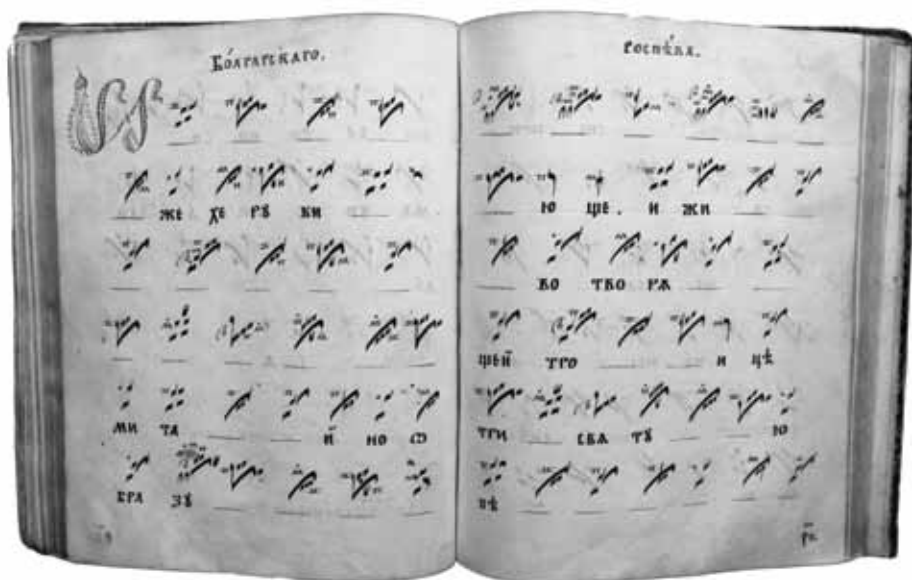 Болгарскаго.
И
же хе рꙋ ви
ми та й но ѡ
бра зꙋ
роспѣва.
ю ще . и жи
во тво рѧ
щей тро и цѣ
три свѧ тꙋ ю
пѣ